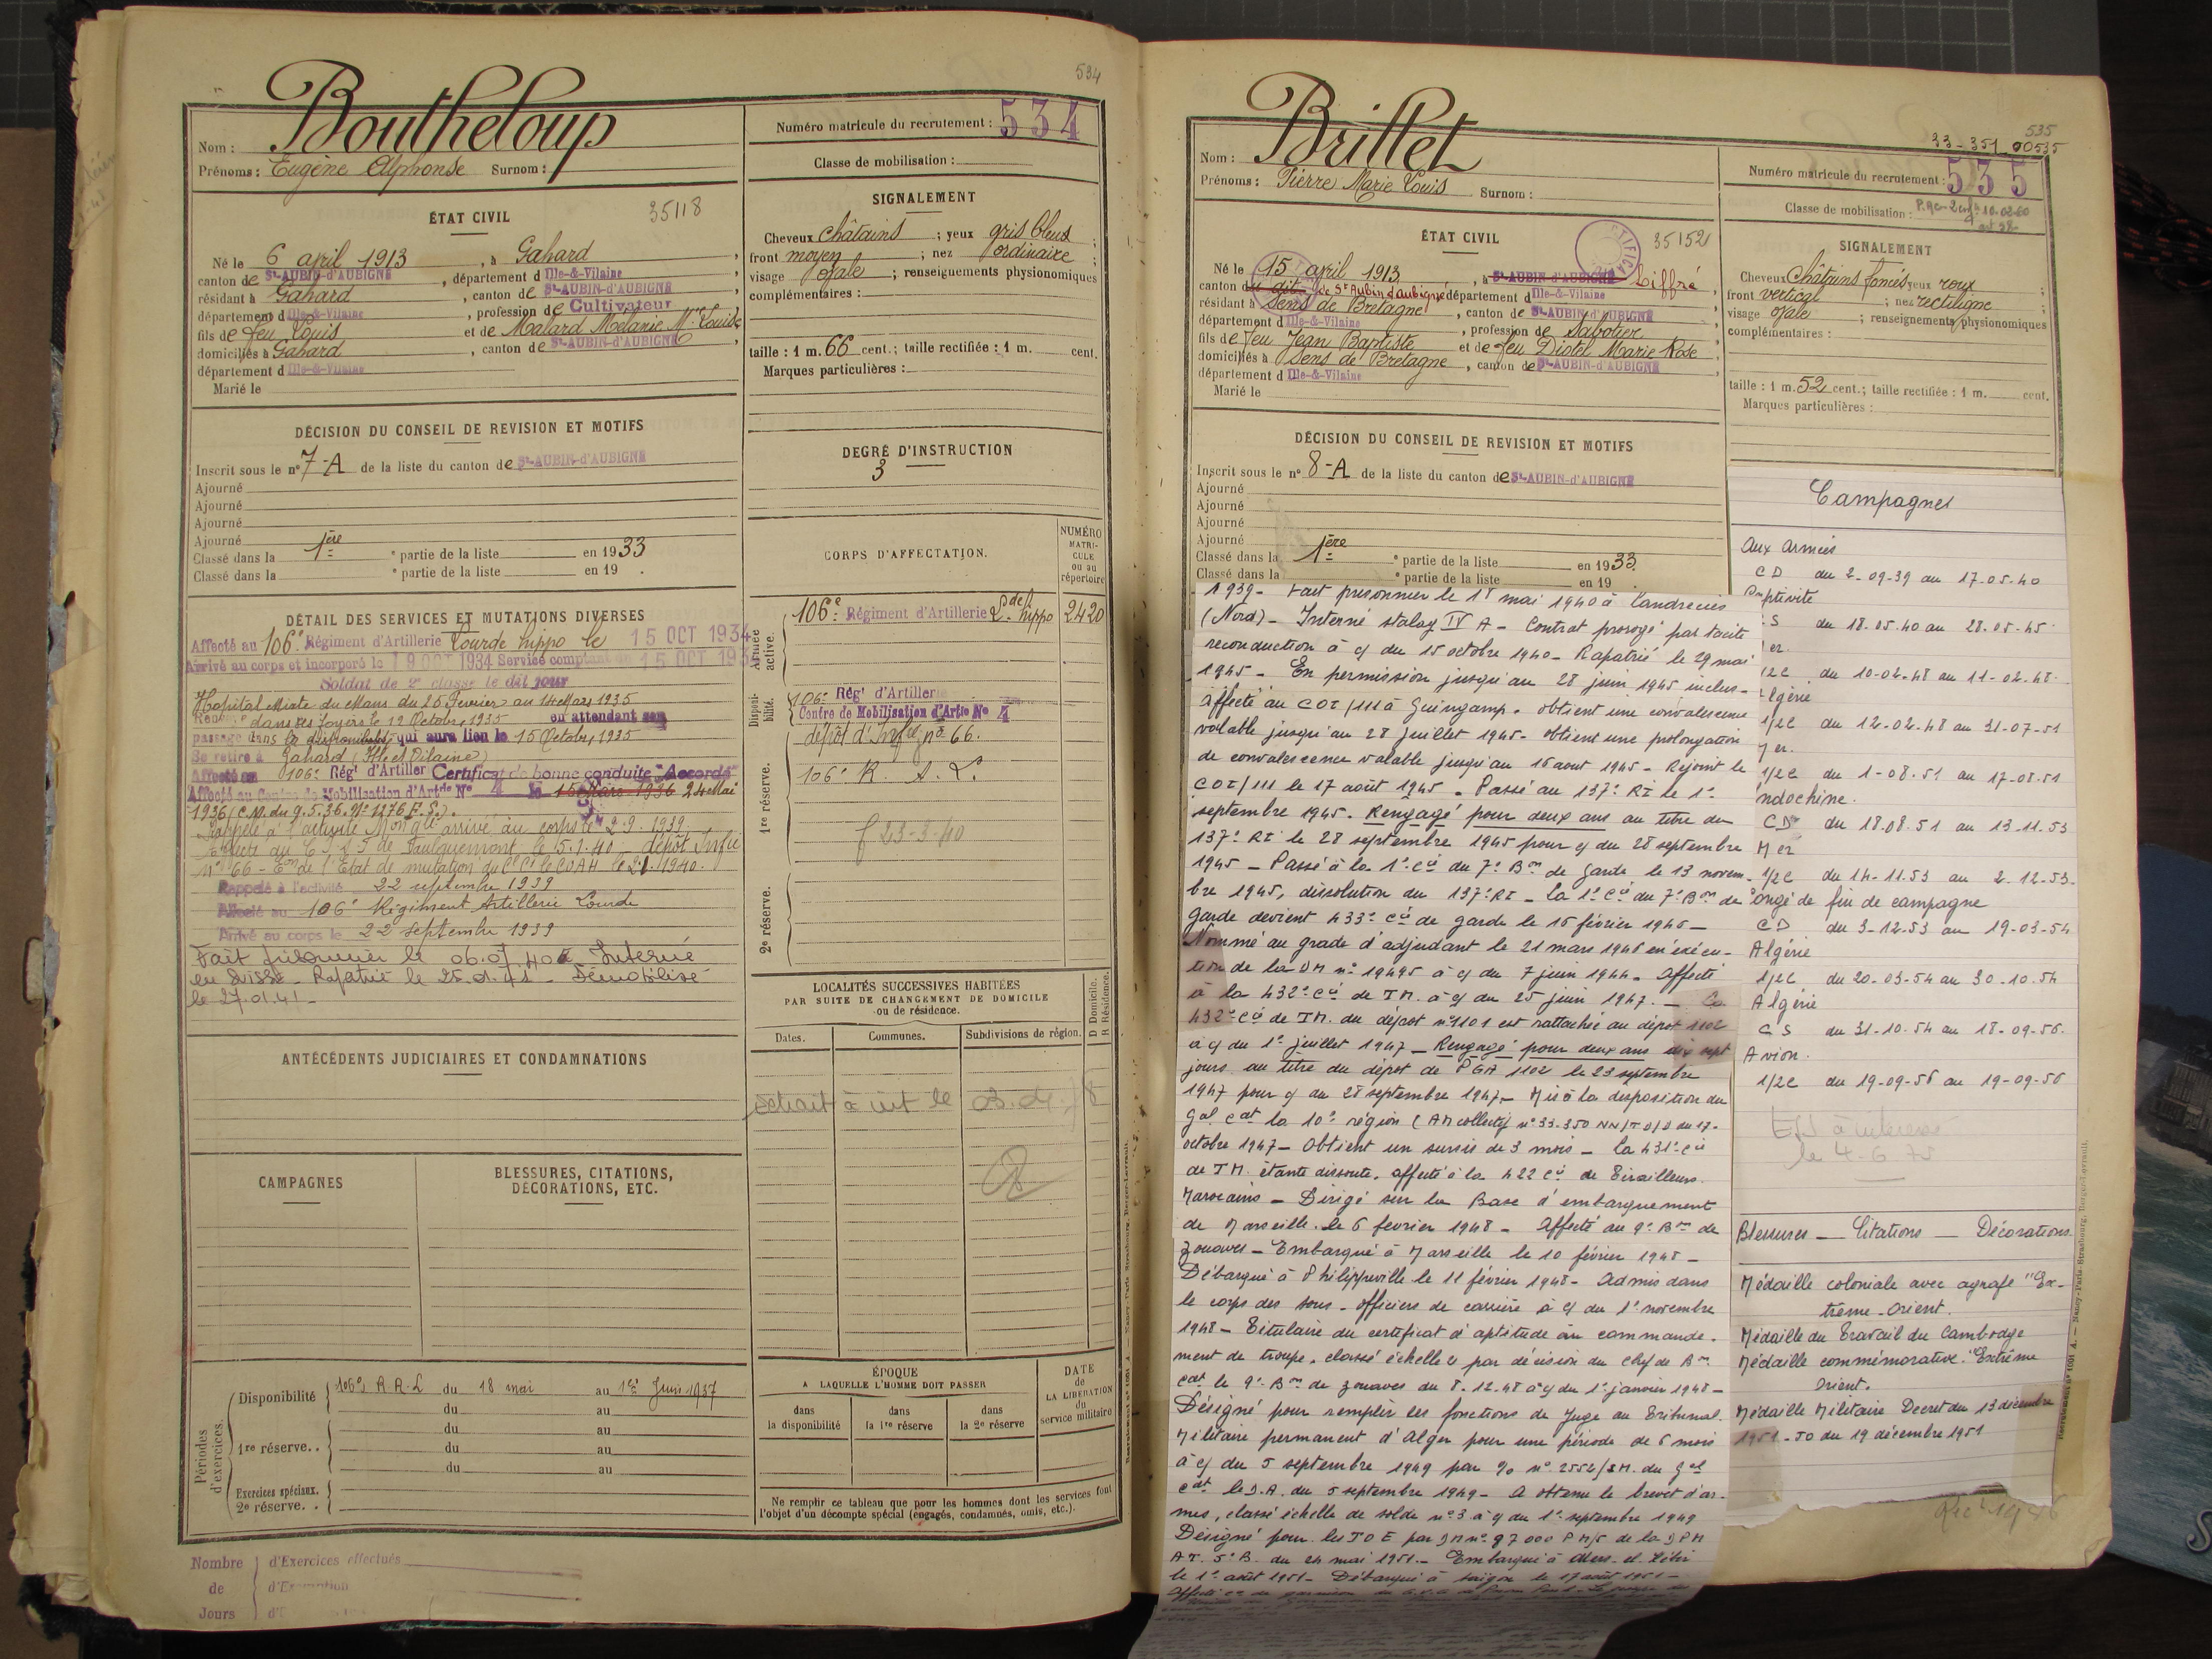 534
Nom : Boutheloup
Prénoms : Eugène Alphonse Surnom :
Numéro matricule du recrutement : 534
Classe de mobilisation :
ÉTAT CIVIL
35118
Né le 6 april 1913, à Gahard
canton de St-AUBIN-d'AUBIGNÉ, département d Ille-&-Vilaine
résidant à Gahard, canton de St-AUBIN-d'AUBIGNÉ
département d Ille-&-Vilaine, profession de Cultivateur
fils de feu Louis et de Malard Mélanie Mie Louise
domiciliés à Gahard, canton de St-AUBIN-d'AUBIGNÉ
département d Ille-&-Vilaine
Marié le
SIGNALEMENT
Cheveux châtains ; yeux gris bleus ;
front moyen ; nez ordinaire ;
visage ovale ; renseignements physionomiques
complémentaires :
taille : 1 m. 66 cent. ; taille rectifiée : 1 m. cent.
Marques particulières :
DÉCISION DU CONSEIL DE REVISION ET MOTIFS
Inscrit sous le n° 7-A de la liste du canton de St-AUBIN-d'AUBIGNÉ
Ajourné
Ajourné
Ajourné
Ajourné
Classé dans la 1ère e partie de la liste en 1933
Classé dans la e partie de la liste en 19 .
DEGRÉ D'INSTRUCTION
3
DÉTAIL DES SERVICES ET MUTATIONS DIVERSES
Affecté au 106e Régiment d'Artillerie Lourde hippo le 15 OCT 1934
Arrivé au corps et incorporé le 19 OCT 1934 Service comptant du 15 OCT 1934
Soldat de 2e classe le dit jour
Hôpital Mixte du Mans du 25 Fevrier au 14 Mars 1935
dans ses foyers le 12 Octobre 1935 en attendant son
passage dans la disponibilité qui aura lieu le 15 Octobre 1935
Se retire à Gahard (Ille et Vilaine)
Affecté au 106e Régt d'Artiller Certificat de bonne conduite "Accordé"
Affecté au Centre de Mobilisation d'Artie N° 4 le 15 Mars 1936 24 Mai
1936 (C.M. du 9.5.36. N° 1276 E.S.).
Rappelé à l'activité Mon Gle arrivé au corps le 2.9.1939.
de Faulquemont le 5.1.40 dépôt Infie
N° 66 - Em de l'Etat de mutation du 1940.
Rappelé à l'activité 22 septembre 1939
Affecté au 106e Régiment Artillerie Lourde
Arrivé au corps le 22 septembre 1939
Fait prisonnier le 06.07.40 Interné
en Suisse - Rapatrié le 25.01.41 - Démobilisé
le 27.01.41 -
CORPS D'AFFECTATION.
NUMÉRO MATRICULE ou au répertoire
Armée active.
106e Régiment d'Artillerie Lde hippo 2420
Disponibilité.
106e Régt d'Artillerie
Centre de Mobilisation d'Artie No 4
dépôt d'Infie n° 66.
1re réserve.
106e R. A. L.
f 23-3-40
2e réserve.
LOCALITÉS SUCCESSIVES HABITÉES
PAR SUITE DE CHANGEMENT DE DOMICILE
ou de résidence.
D Domicile.
R Résidence.
Dates.
Communes.
Subdivisions de région.
ANTÉCÉDENTS JUDICIAIRES ET CONDAMNATIONS
CAMPAGNES
BLESSURES, CITATIONS,
DÉCORATIONS, ETC.
Périodes d'exercices.
Disponibilité 106e R A L du 18 mai au 1er Juin 1937
du au
1re réserve. . du au
du au
du au
Exercices spéciaux.
2e réserve. .
ÉPOQUE
A LAQUELLE L'HOMME DOIT PASSER
dans la disponibilité
dans la 1re réserve
dans la 2e réserve
DATE de LA LIBÉRATION du service militaire
Ne remplir ce tableau que pour les hommes dont les services font
l'objet d'un décompte spécial (engagés, condamnés, omis, etc.).
Nombre de Jours
d'Exercices effectués
d'Exemption
535
33-351 00535
Nom : Brillet
Prénoms : Pierre Marie Louis Surnom :
Numéro matricule du recrutement : 535
Classe de mobilisation :
ÉTAT CIVIL
351521
Né le 15 april 1913, à St-AUBIN-d'AUBIGNÉ Liffré
canton du dit de St Aubin d'aubigné département d Ille-&-Vilaine
résidant à Sens de Bretagne, canton de St-AUBIN-d'AUBIGNÉ
département d Ille-&-Vilaine, profession de Sabotier
fils de feu Jean Baptiste et de feu Diotel Marie Rose
domiciliés à Sens de Bretagne, canton de St-AUBIN-d'AUBIGNÉ
département d Ille-&-Vilaine
Marié le
SIGNALEMENT
Cheveux Châtains foncés yeux roux ;
front vertical ; nez rectiligne ;
visage ovale ; renseignements physionomiques
complémentaires :
taille : 1 m. 52 cent. ; taille rectifiée : 1 m. cent.
Marques particulières :
DÉCISION DU CONSEIL DE REVISION ET MOTIFS
Inscrit sous le n° 8-A de la liste du canton de St-AUBIN-d'AUBIGNÉ
Ajourné
Ajourné
Ajourné
Ajourné
Classé dans la 1ère e partie de la liste en 1933.
Classé dans la e partie de la liste en 19 .
1939 - Fait prisonnier le 18 mai 1940 à Landrecies
(Nord) - Interné stalag IV A - Contrat prorogé par tacite
reconduction à c/ du 15 octobre 1940 - Rapatrié le 29 mai
1945 - En permission jusqu'au 28 juin 1945 inclus -
Affecté au COT/111 à Guingamp. Obtient une convalescence
valable jusqu'au 28 juillet 1945 - obtient une prolongation
de convalescence valable jusqu'au 16 aout 1945 - Rejoint le
COT/111 le 17 août 1945 - Passé au 137e RI le 1er
septembre 1945. Rengagé pour deux ans au titre du
137e RI le 28 septembre 1945 pour c/ du 28 septembre
1945 - Passé à la 1e Cie du 7e Bon de Garde le 13 novem-
bre 1945, dissolution du 137e RI - La 1e Cie du 7e Bon de
Garde devient 433e Cie de garde le 16 février 1946 -
Nommé au grade d'adjudant le 21 mars 1946 en exécu-
tion de la DM n° 19495 à c/ du 7 juin 1944 - Affecté
à la 432e Cie de TM. à c/ du 25 juin 1947. - La
432e Cie de TM. du dépot n° 1101 est rattachée au dépot 1102
à c/ du 1er juillet 1947 - Rengagé pour deux ans dix sept
jours au titre du dépot de PGA 1102 le 23 septembre
1947 pour c/ du 28 septembre 1947 - Mis à la disposition du
Gal Cdt la 10e région (AM collectif n° 33.350 du 17-
octobre 1947 - Obtient un sursis de 3 mois - La 431e Cie
de TM. étante dissoute, affecté à la 422 Cie de Tirailleurs
Marocains - Dirigé sur la Base d'embarquement
de Marseille le 6 fevrier 1948 - Affecté au 9e Bon de
Zouaves - Embarqué à Marseille le 10 février 1948 -
Débarqué à Philippeville le 11 février 1948 - Admis dans
le corps des sous-officiers de carrière à c/ du 1er novembre
1948 - Titulaire du certificat d'aptitude au commande-
ment de troupe, classé échelle 2 par décision du chef de Bon
Cdt le 9e Bon de zouaves du 8.12.48 à c/ du 1er janvier 1948 -
Désigné pour remplir les fonctions de Juge au Tribunal
Militaire permanent d'Alger pour une période de 6 mois
à c/ du 5 septembre 1949 par % n° 2552/SM. du Gal
Cdt le D.A. du 5 septembre 1949 - A obtenu le brevet d'ar-
mes, classé échelle de solde n° 3 à c/ du 1er septembre 1949
Désigné pour les TOE par DM n° 97000 PM/5 de la DPM
AT. 5e B. du 24 mai 1951. - Embarqué à Mers-el-Kébir
le 1er août 1951 - Débarqué à Saigon le 17 août 1951 -
Campagnes
Aux armées
CD du 2-09-39 au 17-05-40
Captivité
CS du 18.05.40 au 28.05.45.
Mer.
1/2C du 10-02-48 au 11-02-48.
Algérie
1/2C du 12-02-48 au 31-07-51
Mer.
1/2C du 1-08.51 au 17-08.51
Indochine.
CD du 18.08.51 au 13.11.53
Mer
1/2C du 14-11.53 au 2-12-53.
Congé de fin de campagne
CD du 3-12.53 au 19-03-54
Algérie
1/2C du 20-03-54 au 30-10.54
Algérie
CS du 31-10.54 au 18-09-56.
Avion.
1/2C du 19-09-56 au 19-09-56
le 4-6 75
Blessures - Citations - Décorations
Médaille coloniale avec agrafe "Ex-
trême-Orient.
Médaille du Travail du Cambodge
Médaille commémorative. "Extrême
Orient.
Médaille Militaire Decret du 13 décembre
1951 - JO du 19 décembre 1951